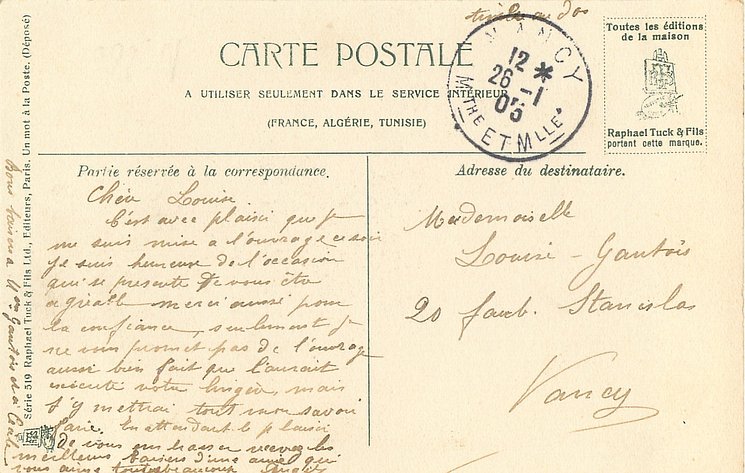 timbre au dos
NANCY
12 *
26 -1
05
MTHE ET MLLE
Toutes les éditions
de la maison
Raphael Tuck & Fils
portent cette marque.
CARTE POSTALE
A UTILISER SEULEMENT DANS LE SERVICE INTÉRIEUR
(FRANCE, ALGÉRIE, TUNISIE)
Partie réservée à la correspondance.
Adresse du destinataire.
Chère Louise
C'est avec plaisir que je
me suis mise a l'ouvrage ce soir
Je suis heureuse de l'occasion
qui se presente de vous être
agréable merci aussi pour
la confiance, seulement je
ne vous promet pas de l'ouvrage
aussi bien fait que l'aurait
exécuté votre lingère, mais
j'y mettrai tout mon savoir
faire. En attendant le plaisir
de vous embrasser recevez les
meilleurs baisers d'une amie qui
vous aime toutes beaucoup
Mademoiselle
Louise Gautois
20 faub. Stanislas
Nancy
Série 519 Raphael Tuck & Fils Ltd., Editeurs, Paris. Un mot à la Poste. (Déposé)
Bons baisers a Mme Gautois et a